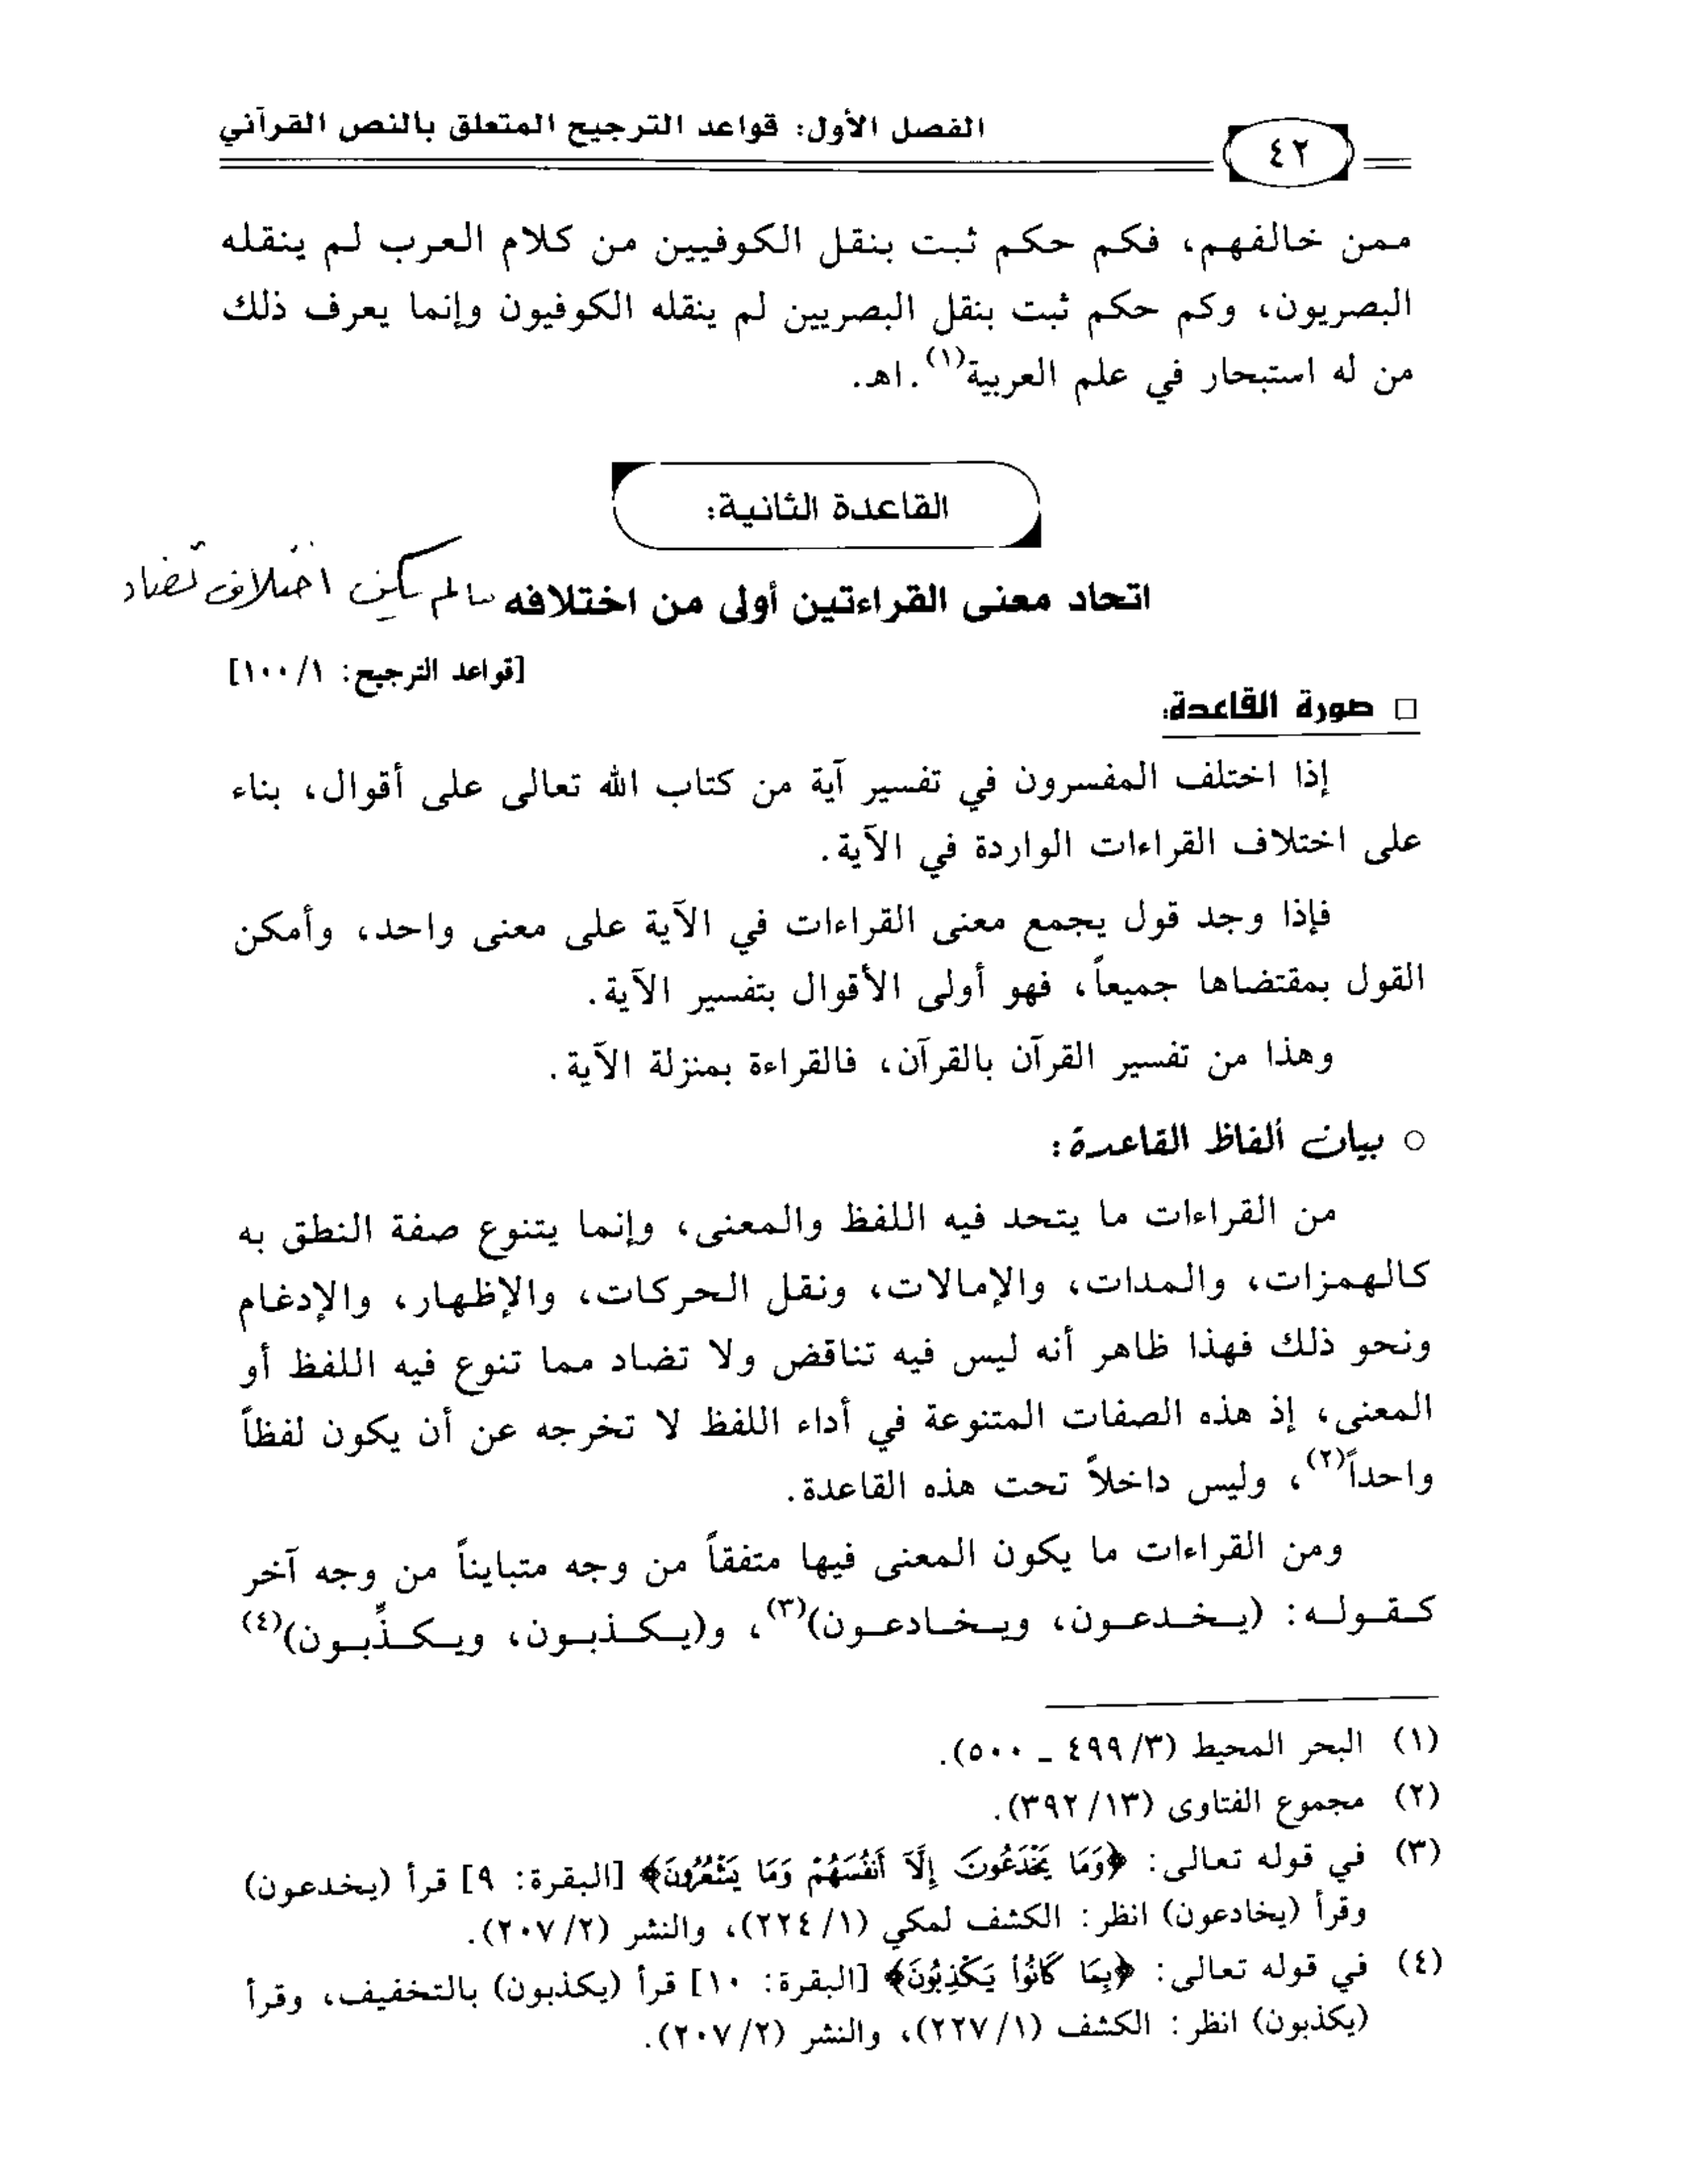 الفصل الأول: قواعد الترجيح المتعلق بالنص القرآني
٤٢
ممن خالفهم، فكم حكم ثبت بنقل الكوفيين من كلام العرب لم ينقله
البصريون، وكم حكم ثبت بنقل البصريين لم ينقله الكوفيون وإنما يعرف ذلك
من له استبحار في علم العربية(١).اهـ.
القاعدة الثانية:
اتحاد معنى القراءتين أولى من اختلافه مالم يكن اختلاف تضاد
[قواعد الترجيح: ١/١٠٠]
□ صورة القاعدة:
إذا اختلف المفسرون في تفسير آية من كتاب الله تعالى على أقوال، بناء
على اختلاف القراءات الواردة في الآية.
فإذا وجد قول يجمع معنى القراءات في الآية على معنى واحد، وأمكن
القول بمقتضاها جميعاً، فهو أولى الأقوال بتفسير الآية.
وهذا من تفسير القرآن بالقرآن، فالقراءة بمنزلة الآية.
○ بيان ألفاظ القاعدة:
من القراءات ما يتحد فيه اللفظ والمعنى، وإنما يتنوع صفة النطق به
كالهمزات، والمدات، والإمالات، ونقل الحركات، والإظهار، والإدغام
ونحو ذلك فهذا ظاهر أنه ليس فيه تناقض ولا تضاد مما تنوع فيه اللفظ أو
المعنى، إذ هذه الصفات المتنوعة في أداء اللفظ لا تخرجه عن أن يكون لفظاً
واحداً(٢)، وليس داخلاً تحت هذه القاعدة.
ومن القراءات ما يكون المعنى فيها متفقاً من وجه متبايناً من وجه آخر
كقوله: (يخدعون، ويخادعون)(٣)، و(يكذبون، ويكذِّبون)(٤)
(١) البحر المحيط (٣/٤٩٩ ـ ٥٠٠).
(٢) مجموع الفتاوى (١٣/٣٩٢).
(٣) في قوله تعالى: ﴿وَمَا يَخْدَعُونَ إِلَّآ أَنفُسَهُمْ وَمَا يَشْعُرُونَ﴾ [البقرة: ٩] قرأ (يخدعون)
وقرأ (يخادعون) انظر: الكشف لمكي (١/٢٢٤)، والنشر (٢/٢٠٧).
(٤) في قوله تعالى: ﴿بِمَا كَانُوا۟ يَكْذِبُونَ﴾ [البقرة: ١٠] قرأ (يكذبون) بالتخفيف، وقرأ
(يكذبون) انظر: الكشف (١/٢٢٧)، والنشر (٢/٢٠٧).